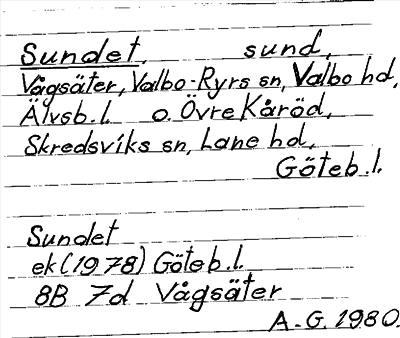 Sundet, sund,
Vågsäter, Valbo-Ryrs sn, Valbo hd,
Älvsb. l. o. Övre Kåröd,
Skredsviks sn, Lane hd,
Göteb. l.
Sundet
ek (1978) Göteb. l.
8B 7d Vågsäter
A-G. 1980.